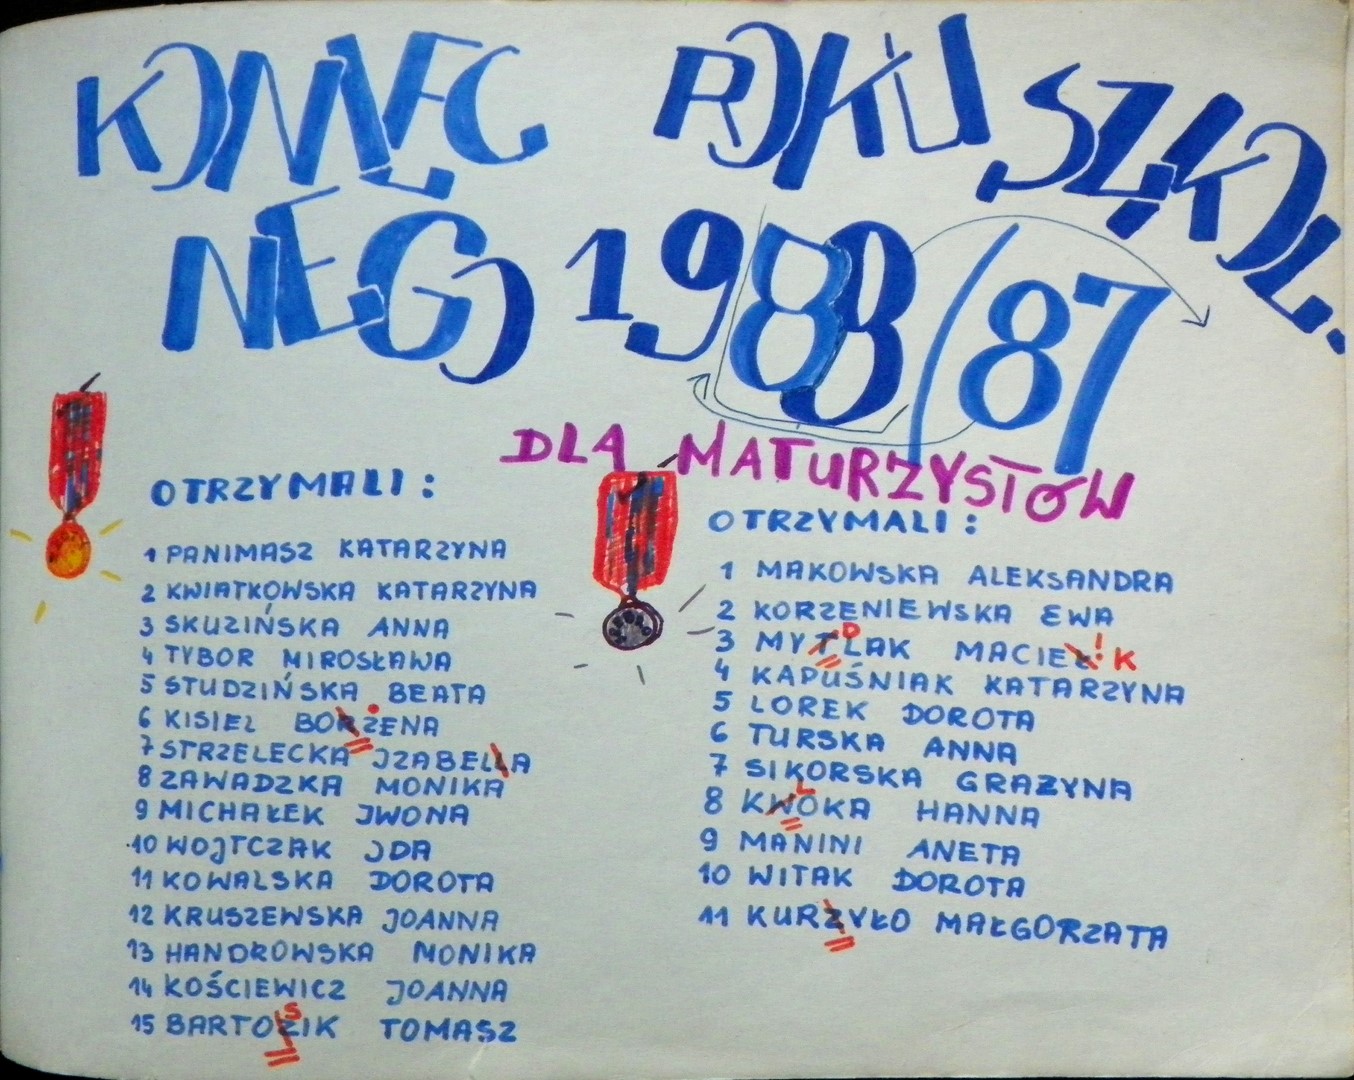 KONIEC ROKU SZKOL.
NEGO 1988/87
DLA MATURZYSTÓW
OTRZYMALI:
1 PANIMASZ KATARZYNA
2 KWIATKOWSKA KATARZYNA
3 SKUZIŃSKA ANNA
4 TYBOR MIROSŁAWA
5 STUDZIŃSKA BEATA
6 KISIEL BORŻENA
7 STRZELECKA IZABELLA
8 ZAWADZKA MONIKA
9 MICHAŁEK IWONA
10 WOJTCZAK IDA
11 KOWALSKA DOROTA
12 KRUSZEWSKA JOANNA
13 HANDROWSKA MONIKA
14 KOŚCIEWICZ JOANNA
S
15 BARTOZIK TOMASZ
OTRZYMALI:
1 MAKOWSKA ALEKSANDRA
2 KORZENIEWSKA EWA
D !
3 MYTLAK MACIEŁ K
4 KAPUŚNIAK KATARZYNA
5 LOREK DOROTA
6 TURSKA ANNA
7 SIKORSKA GRAŻYNA
L
8 KWOKA HANNA
9 MANINI ANETA
10 WITAK DOROTA
11 KURZYŁO MAŁGORZATA